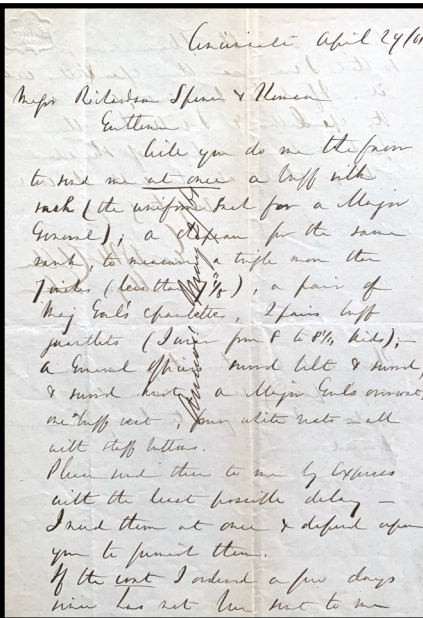 Cincinnati April 24/61
Messrs
Gentlemen
Will you do me the favor
to send me at once a buff silk
sash (the uniform sash for a Major
General); a chapeau for the same
rank, to measure a trifle more than
7 inches (less than 7 1/8), a pair of
Maj Genl's epaulettes, 2 pairs buff
gauntlets (I wear from 8 to 8 1/4 kids);
a General officers sword belt & sword,
& sword knot, a Major Genl's
one buff vest, four white vests - all
with staff buttons.
Please send them to me by express
with the least possible delay -
I need them at once & depend upon
you to furnish them.
If the coat I ordered a few days
since has not been sent to me